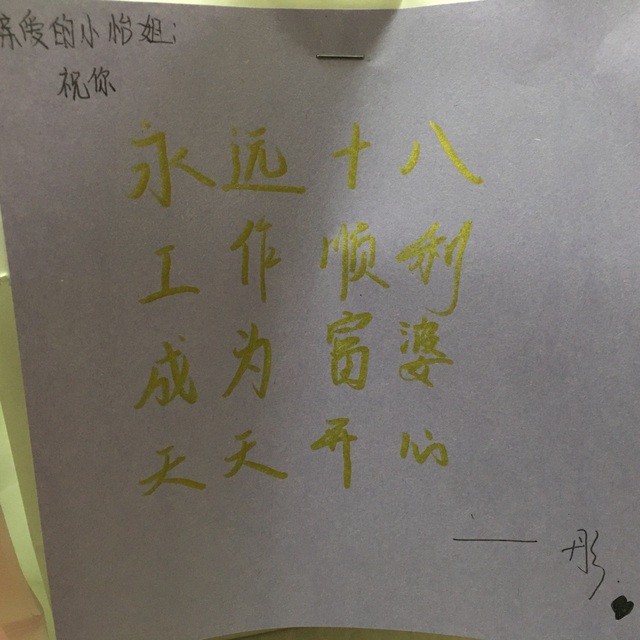 亲爱的小怡姐：
祝你
永远十八
工作顺利
成为富婆
天天开心
——彤